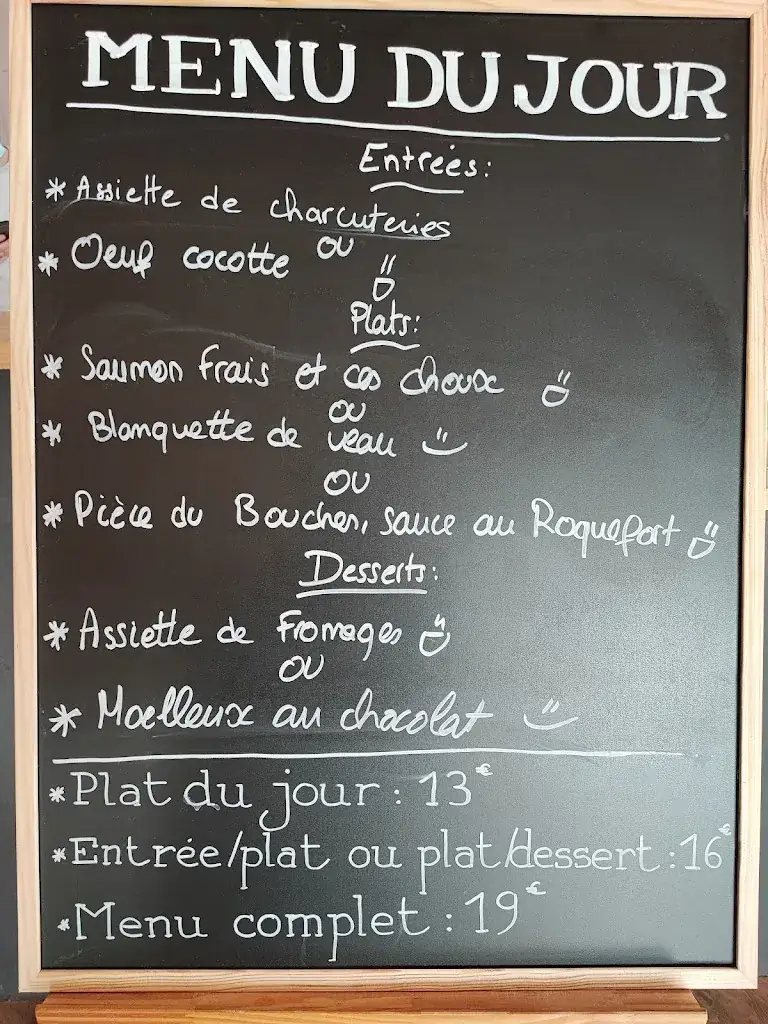 MENU DU JOUR
Entrées:
* Assiette de charcuteries
ou
* Oeuf cocotte
Plats:
* Saumon frais et ces choux
ou
* Blanquette de veau
ou
* Pièce du Boucher, sauce au Roquefort
Desserts:
* Assiette de Fromages
ou
* Moelleux au chocolat
* Plat du jour : 13€
* Entrée/plat ou plat/dessert : 16€
* Menu complet : 19€